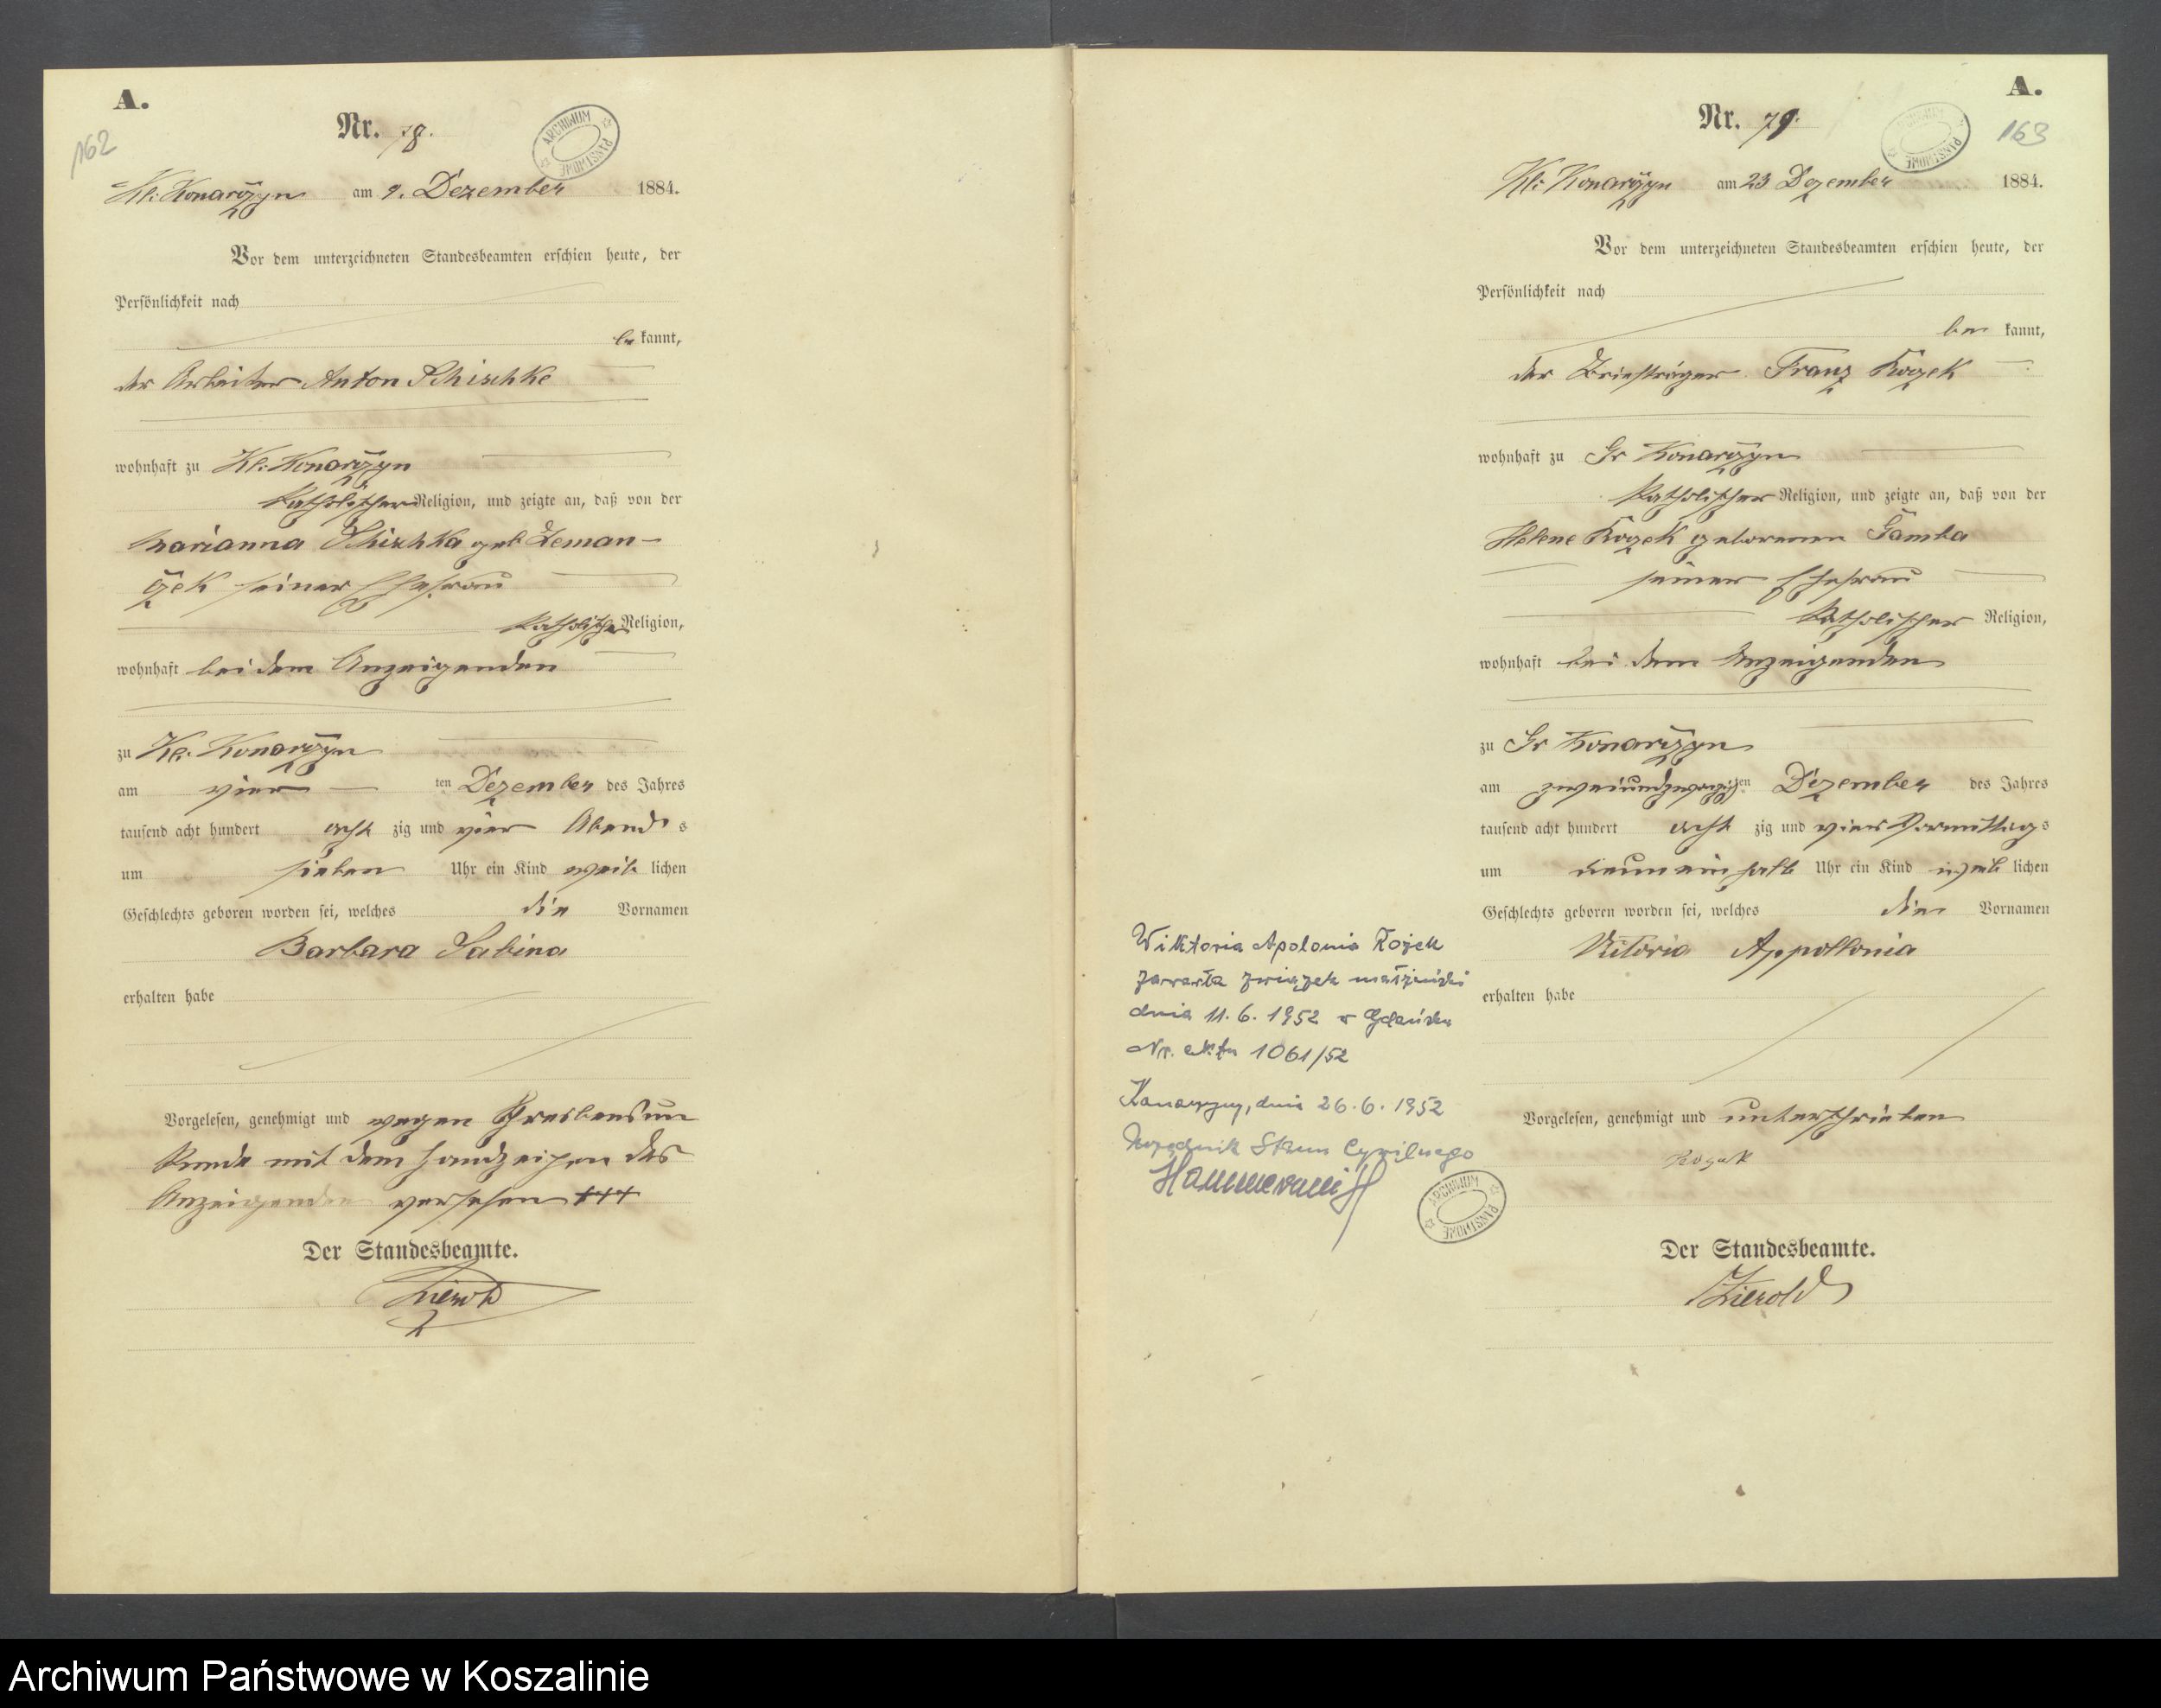 A.
162
Nr. 78.
ARCHIWUM PAŃSTWOWE
Kl: Konarzyn am 9. Dezember 1884.
Vor dem unterzeichneten Standesbeamten erschien heute, der
Persönlichkeit nach
be kannt,
der Arbeiter Anton Schischke
wohnhaft zu Kl: Konarzyn
katholischer Religion, und zeigte an, daß von der
Marianna Schischka geb Leman-
zek seiner Ehefrau
katholischer Religion,
wohnhaft bei dem Anzeigenden
zu Kl: Konarzyn
am vier ten Dezember des Jahres
tausend acht hundert acht zig und vier Abends
um sieben Uhr ein Kind weib lichen
Geschlechts geboren worden sei, welches die Vornamen
Barbara Sabina
erhalten habe
Vorgelesen, genehmigt und wegen Schreibensun
kunde mit dem Handzeichen des
Anzeigenden versehen +++
Der Standesbeamte.
Zierold
A.
163
Nr. 79.
ARCHIWUM PAŃSTWOWE
Kl: Konarzyn am 23 Dezember 1884.
Vor dem unterzeichneten Standesbeamten erschien heute, der
Persönlichkeit nach
be kannt,
der Briefträger Franz Kozek
wohnhaft zu Gr Konarzyn
katholischer Religion, und zeigte an, daß von der
Helene Kozek geborenen Gamba
seiner Ehefrau
katholischer Religion,
wohnhaft bei dem Anzeigenden
zu Gr Konarzyn
am zweiundzwanzigsten Dezember des Jahres
tausend acht hundert acht zig und vier Vormittags
um neun ein halb Uhr ein Kind weib lichen
Geschlechts geboren worden sei, welches die Vornamen
Vitoria Appollonia
erhalten habe
Vorgelesen, genehmigt und unterschrieben
Kozek
Der Standesbeamte.
Zierold
Wiktoria Apolonia Kozek
zawarła związek małżeński
dnia 11.6.1952 w Gdańsku
Nr. aktu 1061/52
Konarzyny, dnia 26.6.1952
Urzędnik Stanu Cywilnego
ARCHIWUM PAŃSTWOWE
Archiwum Państwowe w Koszalinie